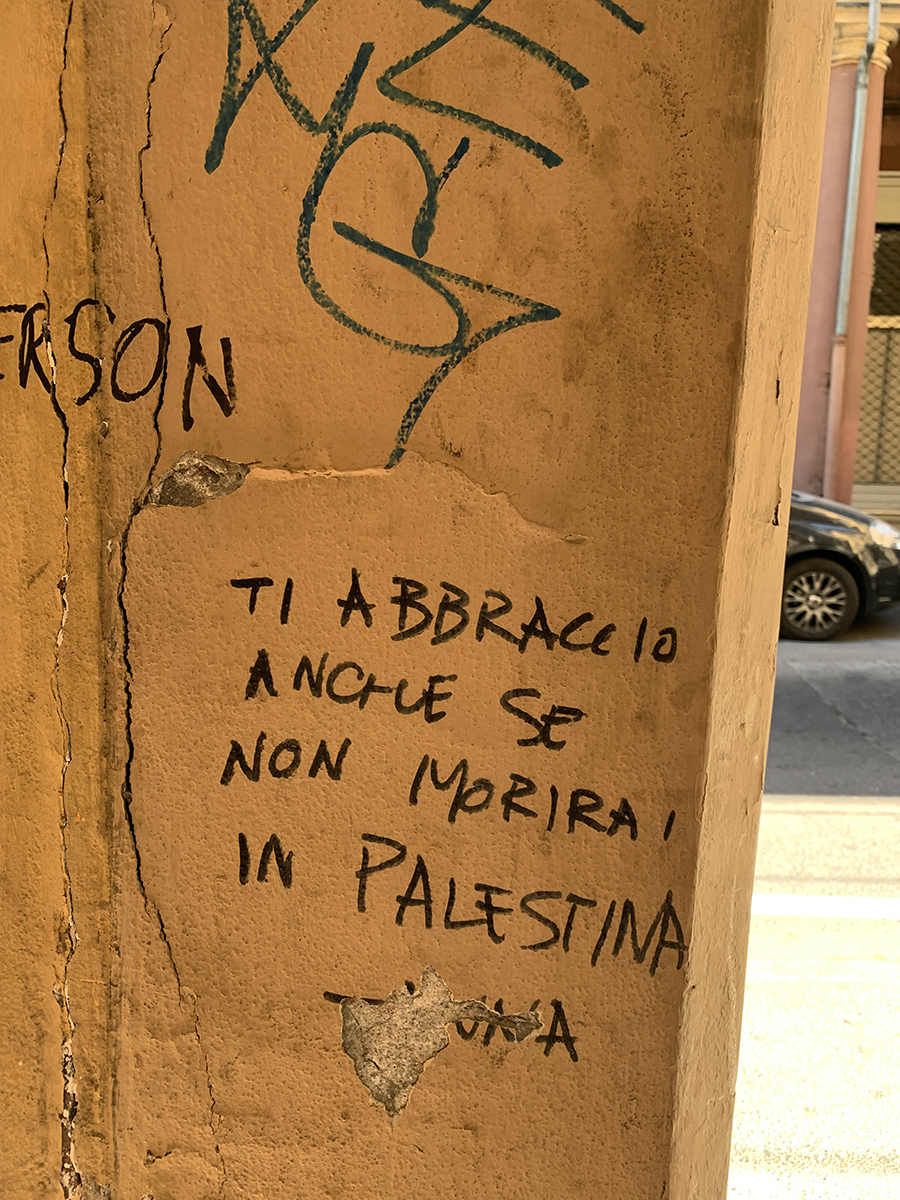 ERSON
TI ABBRACCIO
ANCHE SE
NON MORIRAI
IN PALESTINA